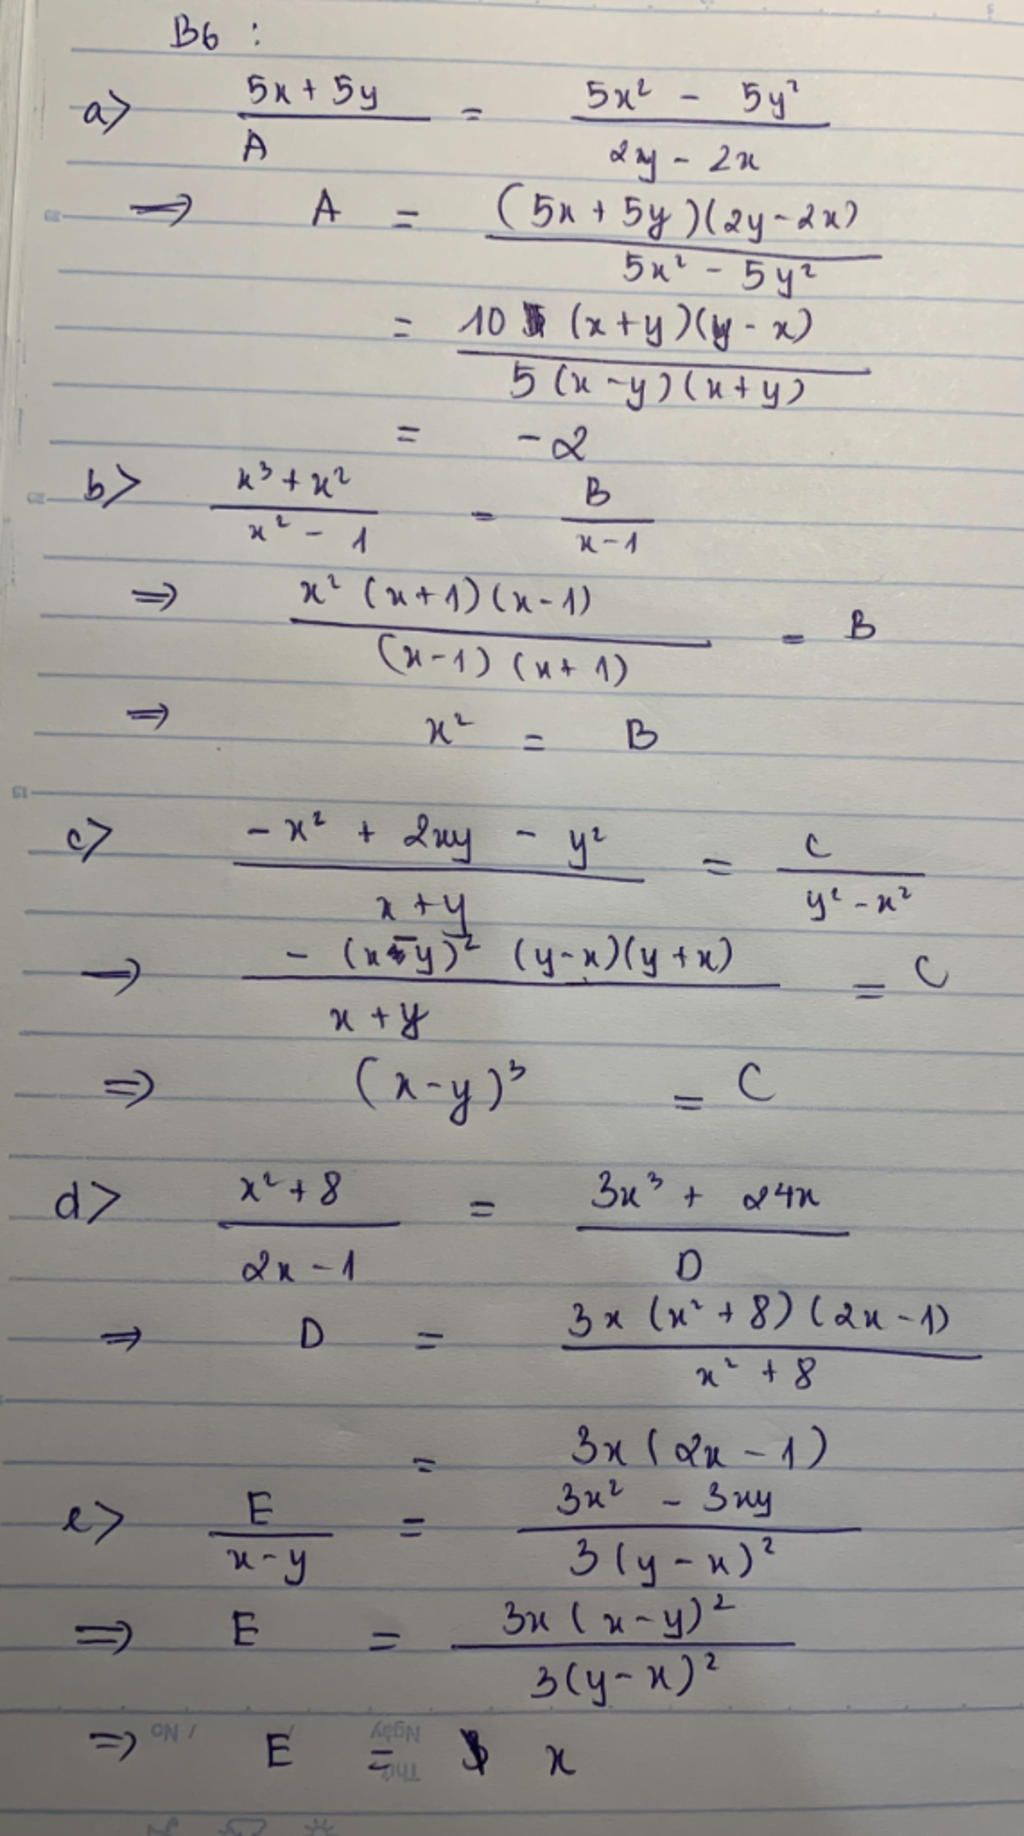 B6 :
a> (5x + 5y)/A = (5x² - 5y²)/(2y - 2x)
⇒ A = ((5x + 5y)(2y - 2x))/(5x² - 5y²)
= (10 (x + y)(y - x))/(5 (x - y)(x + y))
= -2
b> (x³ + x²)/(x² - 1) = B/(x - 1)
⇒ (x² (x + 1)(x - 1))/((x - 1)(x + 1)) = B
⇒ x² = B
c> (-x² + 2xy - y²)/(x + y) = C/(y² - x²)
⇒ (-(x - y)² (y - x)(y + x))/(x + y) = C
⇒ (x - y)³ = C
d> (x² + 8)/(2x - 1) = (3x³ + 24x)/D
⇒ D = (3x (x² + 8)(2x - 1))/(x² + 8)
= 3x (2x - 1)
e> E/(x - y) = (3x² - 3xy)/(3(y - x)²)
⇒ E = (3x (x - y)²)/(3(y - x)²)
⇒ E = x
Thứ
Ngày / No /